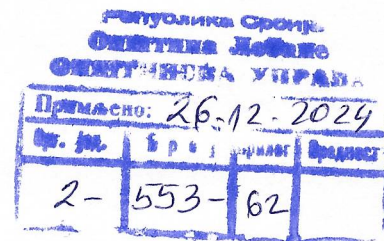 Република Србија
Општина Лебане
ОПШТИНСКА УПРАВА
Примљено: 26-12-2024
Орг. јед. Број Прилог Вредност
2- 553- 62